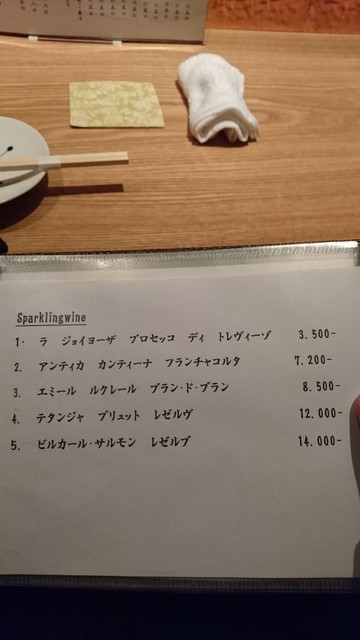 Sparklingwine
1. ラ ジョイヨーザ プロセッコ ディ トレヴィーゾ 3.500-
2. アンティカ カンティーナ フランチャコルタ 7.200-
3. エミール ルクレール ブラン・ド・ブラン 8.500-
4. テタンジャ ブリュット レゼルヴ 12.000-
5. ビルカール・サルモン レゼルブ 14.000-